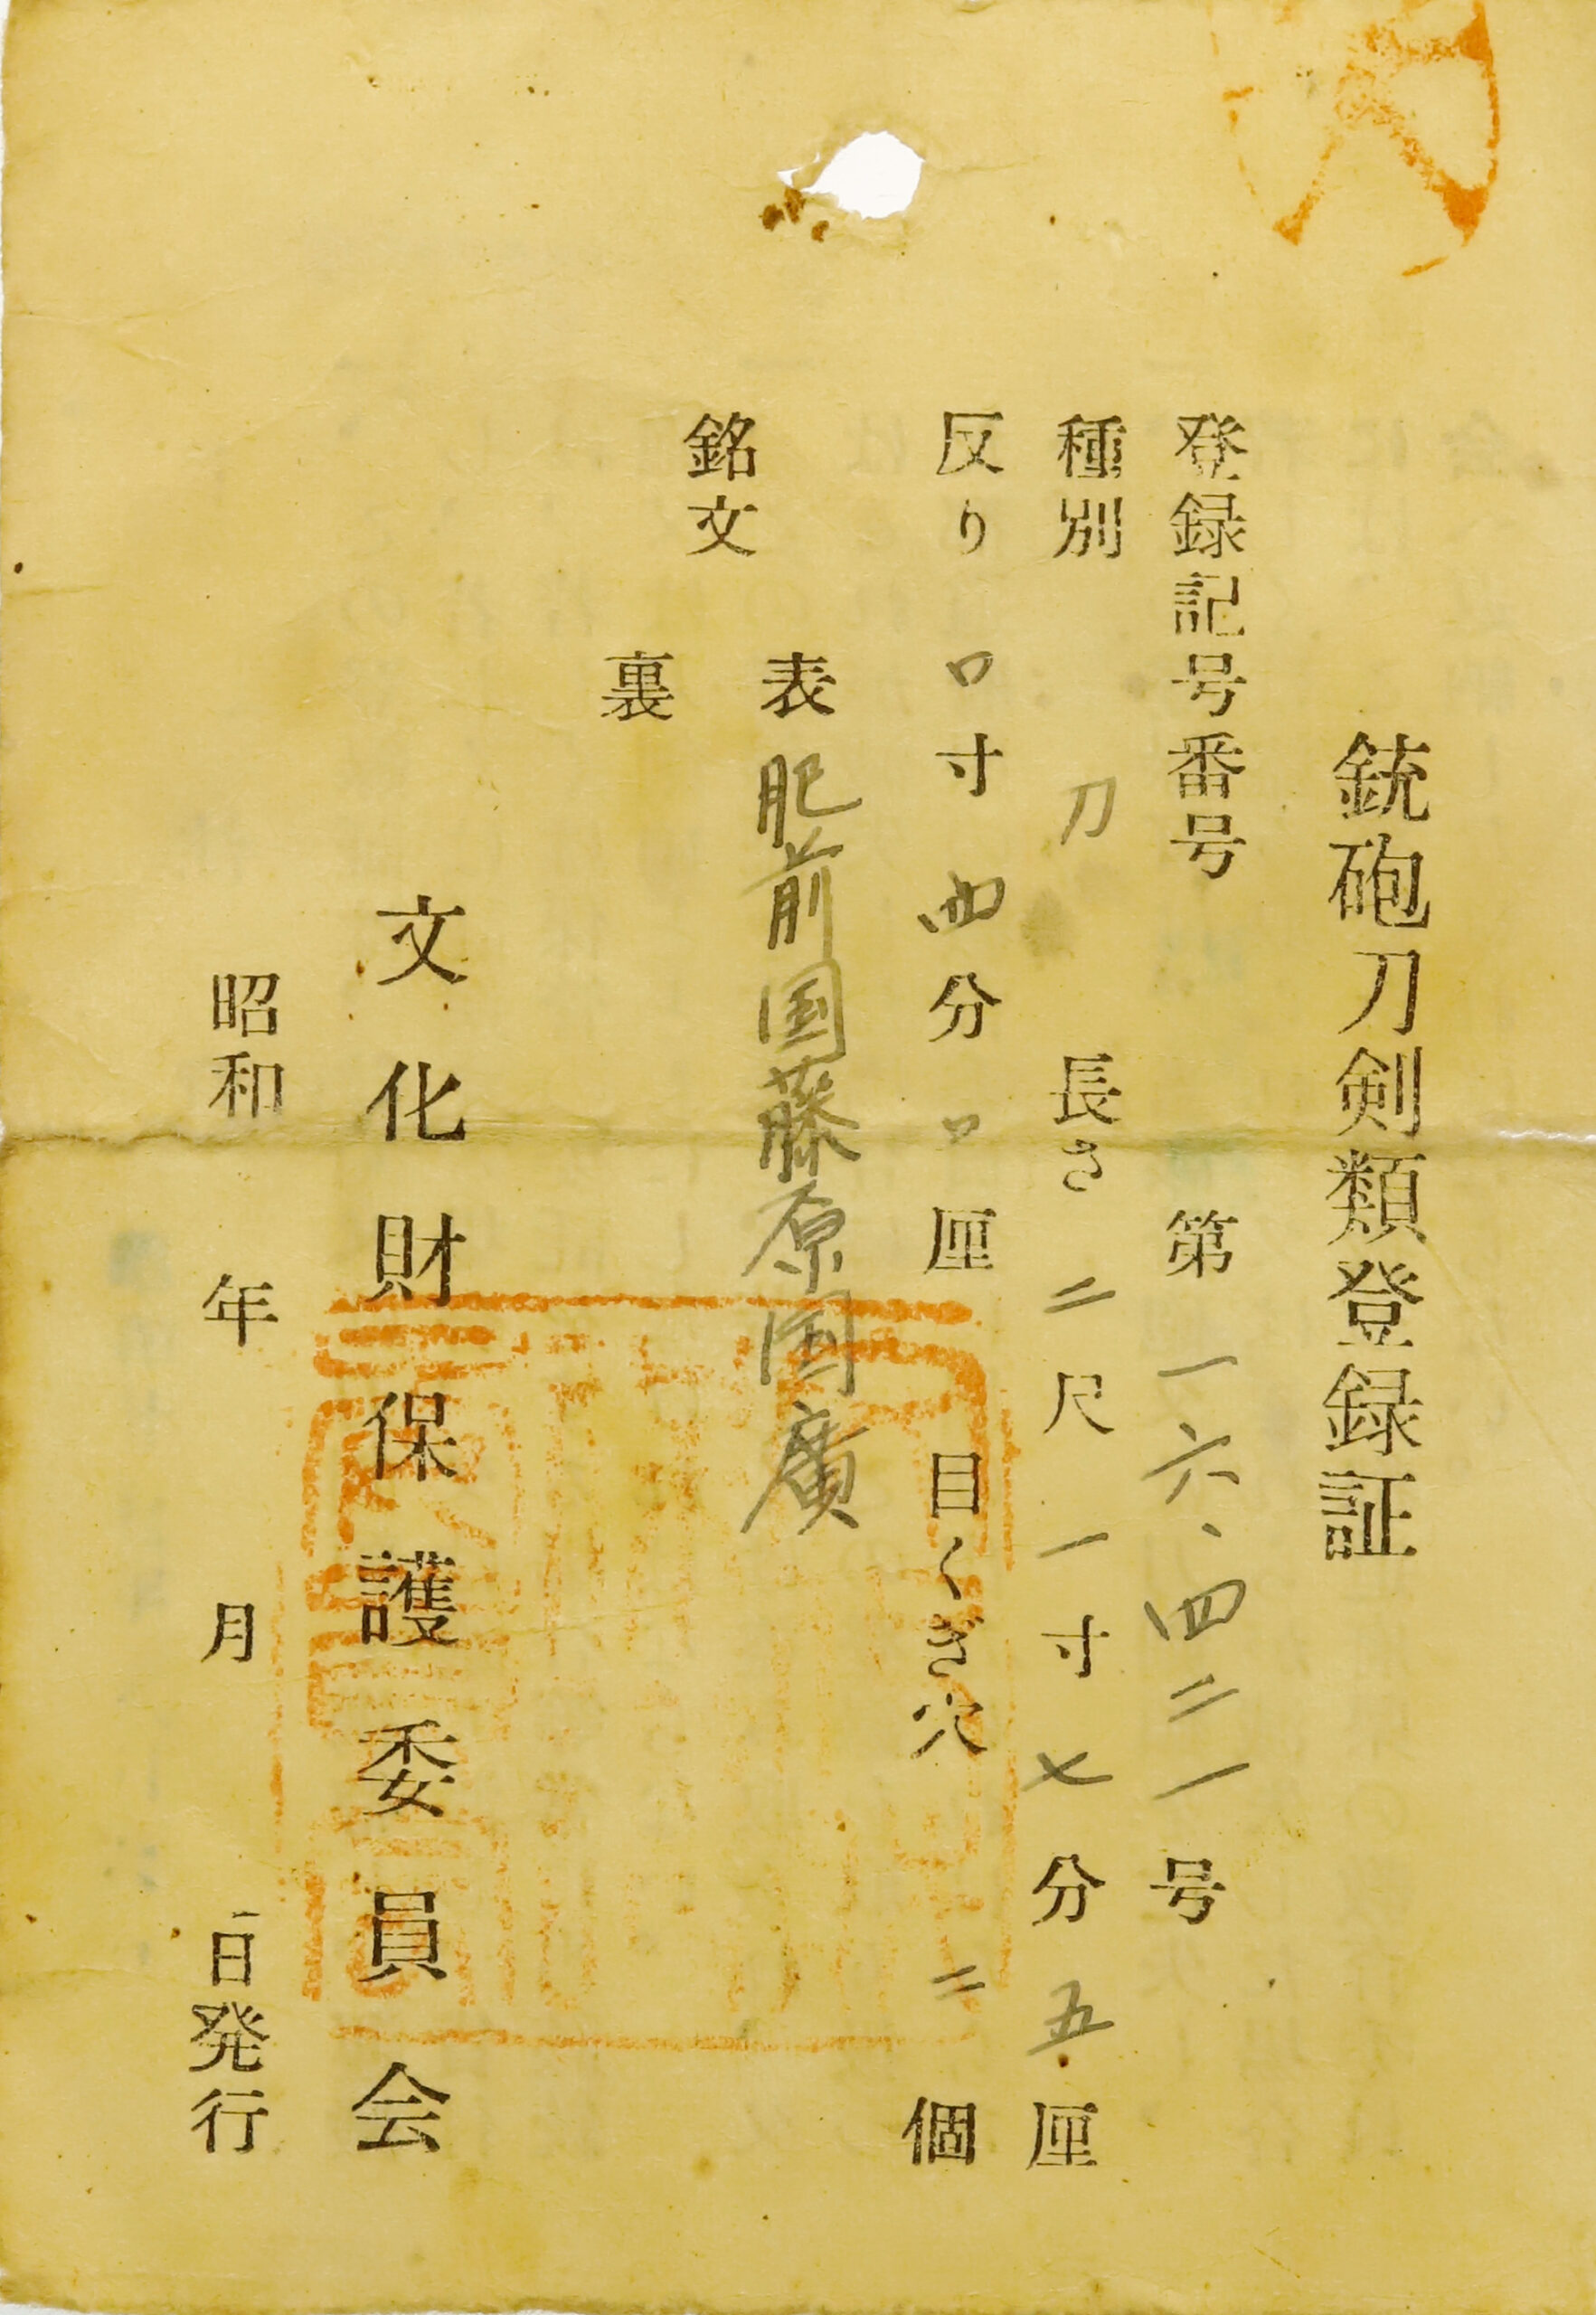 銃砲刀剣類登録証
登録記号番号 第一六、四二一号
種別 刀 長さ 二尺一寸七分五厘
反り 〇寸四分〇厘 目くぎ穴 二個
銘文
表 肥前国藤原国廣
裏
文化財保護委員会
昭和 年 月 日発行